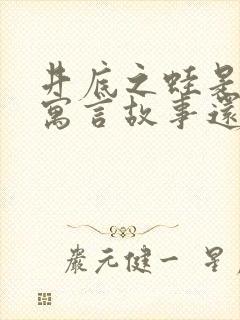 井底之蛙是
寓言故事還
嚴元健一 星